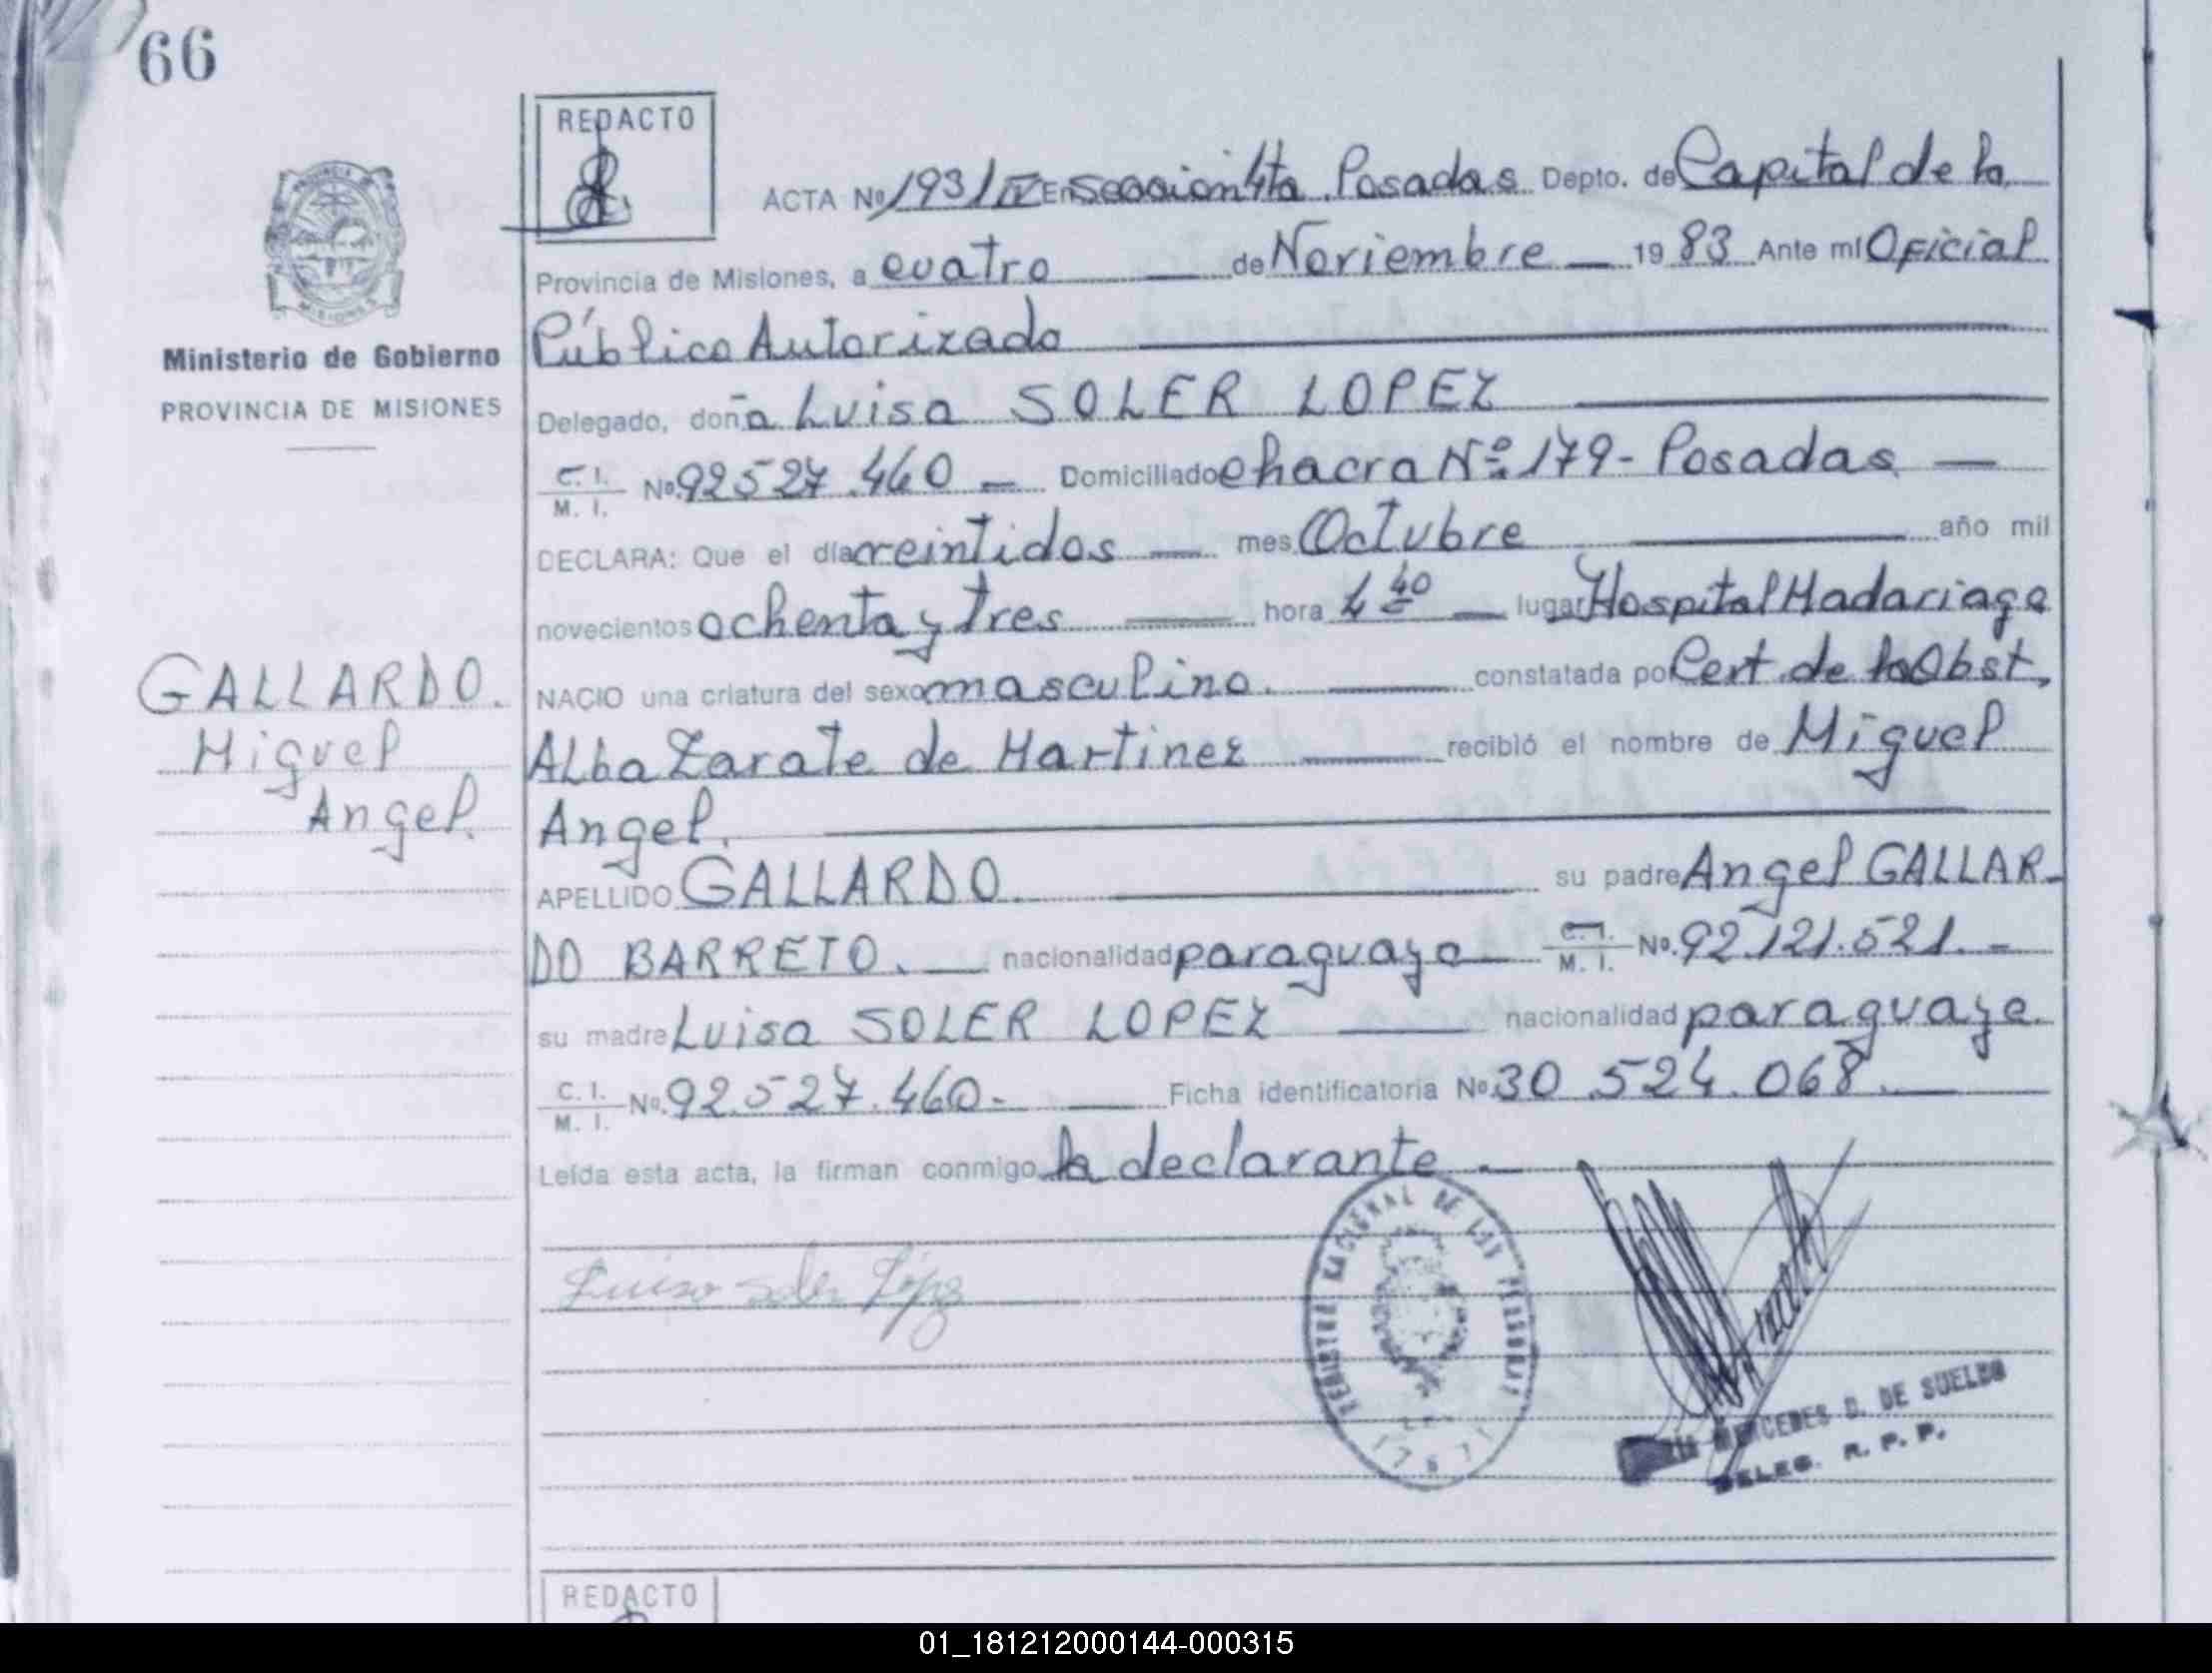 66
REDACTO
ACTA Nº 1931 IV En sección 4ta Posadas Depto. de Capital de la
Provincia de Misiones, a cuatro de Noviembre 1983 Ante mí Oficial
Público Autorizado
Ministerio de Gobierno
PROVINCIA DE MISIONES
Delegado, doña Luisa SOLER LOPEZ
C. I. M. I. Nº 92527.460 Domiciliado chacra Nº 179 - Posadas
DECLARA: Que el día veintidos mes Octubre año mil
novecientos ochenta y tres hora 4 40 lugar Hospital Madariaga
GALLARDO.
Miguel
Angel.
NACIO una criatura del sexo masculino. constatada por Cert. de la Obst,
Alba Zarate de Martinez recibió el nombre de Miguel
Angel.
APELLIDO GALLARDO. su padre Angel GALLAR-
DO BARRETO. nacionalidad paraguaya C. I. M. I. Nº 92.121.521. -
su madre Luisa SOLER LOPEZ nacionalidad paraguaya.
C. I. M. I. Nº 92.527.460- Ficha identificatoria Nº 30.524.068.
Leída esta acta, la firman conmigo la declarante
Luisa Soler López
REGISTRO NACIONAL DE LAS PERSONAS
MERCEDES D. DE SUELDO
DELEG. R. P. P.
REDACTO
01_181212000144-000315